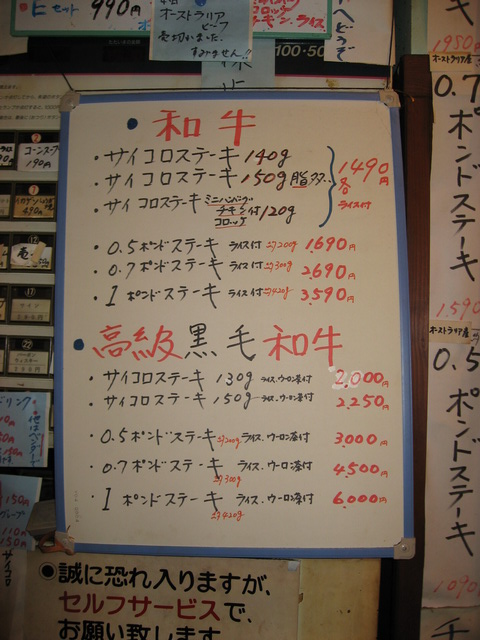 ヒセット 990円
オーストラリア
ビーフ
売切れました。
すみません!!
コロッケ
チキン. ライス
へどうぞ
100・50
コーンスープ
190円
• 和牛
・サイコロステーキ 140g
・サイコロステーキ 150g 脂多
・サイコロステーキ ミニハンバーグ チキン コロッケ 付 120g
各 1490円
ライス付
・0.5ポンドステーキ ライス付 约200g 1690円
・0.7ポンドステーキ ライス付 约300g 2,690円
・1ポンドステーキ ライス付 约420g 3,590円
• 高級黒毛和牛
・サイコロステーキ 130g ライス、ウーロン茶付 2,000円
・サイコロステーキ 150g ライス、ウーロン茶付 2,250円
・0.5ポンドステーキ 约200g ライス、ウーロン茶付 3,000円
・0.7ポンドステーキ 约300g ライス、ウーロン茶付 4,500円
・1ポンドステーキ 约420g ライス、ウーロン茶付 6,000円
キ
1950円
オーストラリア産
0.7ポンドステーキ
1,590
オーストラリア産
0.5ポンドステーキ
1090
チ
ドリンク
150円
グループ
110円
150円
サイコロ
●誠に恐れ入りますが、
セルフサービスで、
お願い致します